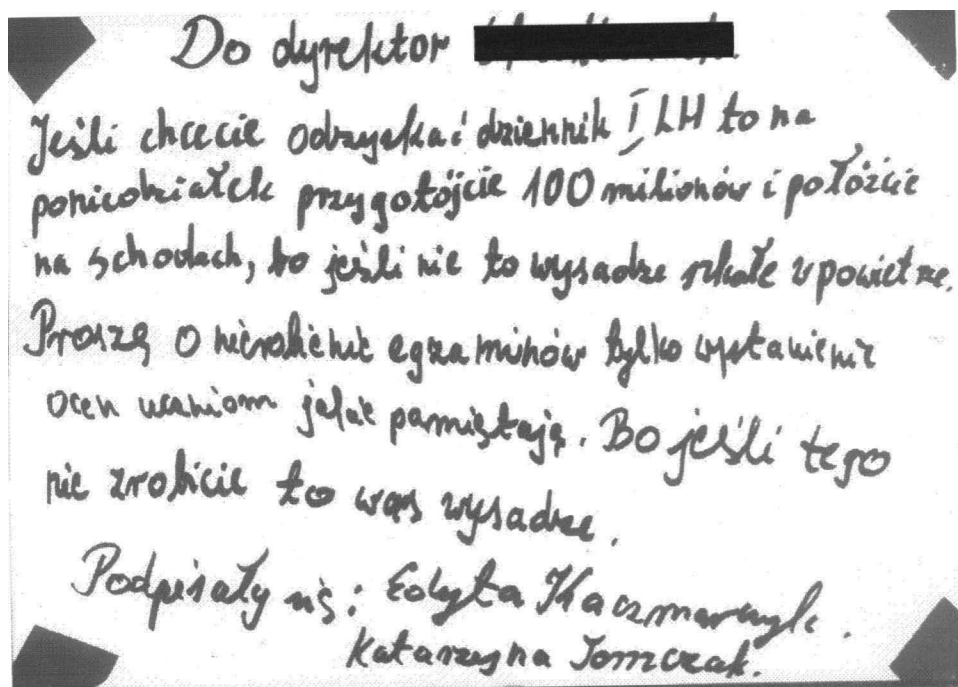 Do dyrektor
Jeśli chcecie odzyskać dziennik I LH to na
poniedziałek przygotójcie 100 milionów i połóżcie
na schodach, bo jeśli nie to wysadze szkałe v powietrze.
Proszę o nierobienie egzaminów tylko wystawienie
ocen uczniom jakie pamiętają. Bo jeśli tego
nie zrobicie to was wysadze.
Podpisały się: Edyta Kaczmarczyk.
Katarzyna Tomczak.